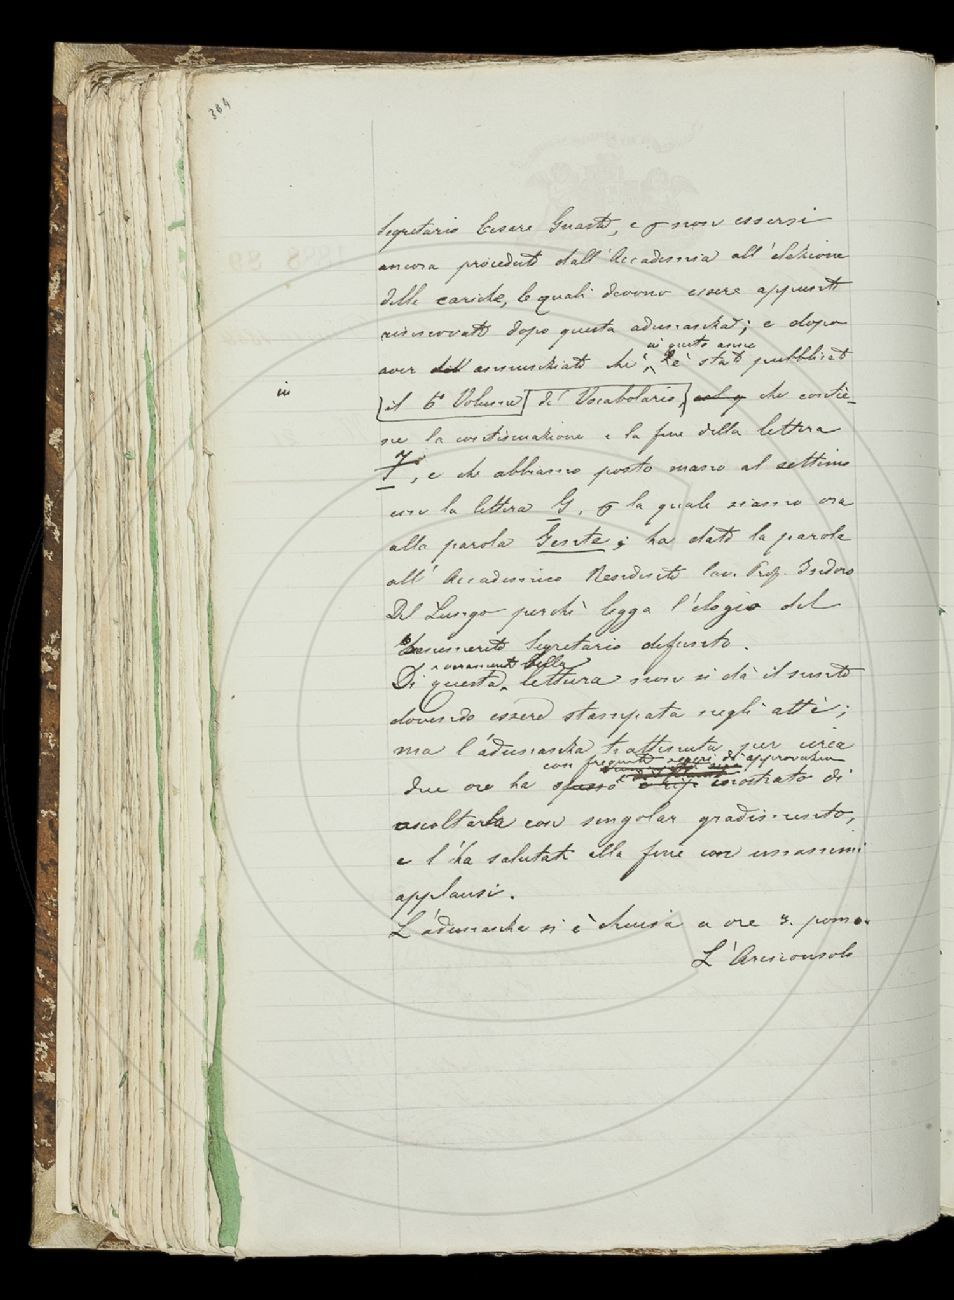 384
Segretario Cesare Guasti, e per non essersi
ancora proceduto dall'Accademia all'elezione
delle cariche, le quali devono essere appunto
rinnovate dopo questa adunanza; e dopo
in questo anno
aver dell' annunziato che è stato pubblicato
in
il 6° Volume di Vocabolario che contie-
ne la continuazione e la fine della lettera
F, e che abbiamo posto mano al settimo
con la lettera G, per la quale siamo ora
alla parola Gente; ha dato la parola
all'Accademico Residente Cav. Prof. Isidoro
Del Lungo perchè legga l'elogio del
benemerito Segretario defunto.
veramente bella
Di questa lettura non si dà il sunto
dovendo essere stampata negli atti;
ma l'adunanza trattenuta per circa
con frequenti segni di approvazione
due ore ha spesso mostrato di
ascoltarla con singolar gradimento,
e l'ha salutata alla fine con unanimi
applausi.
L'adunanza si è chiusa a ore 3. pom.
L'Arciconsolo